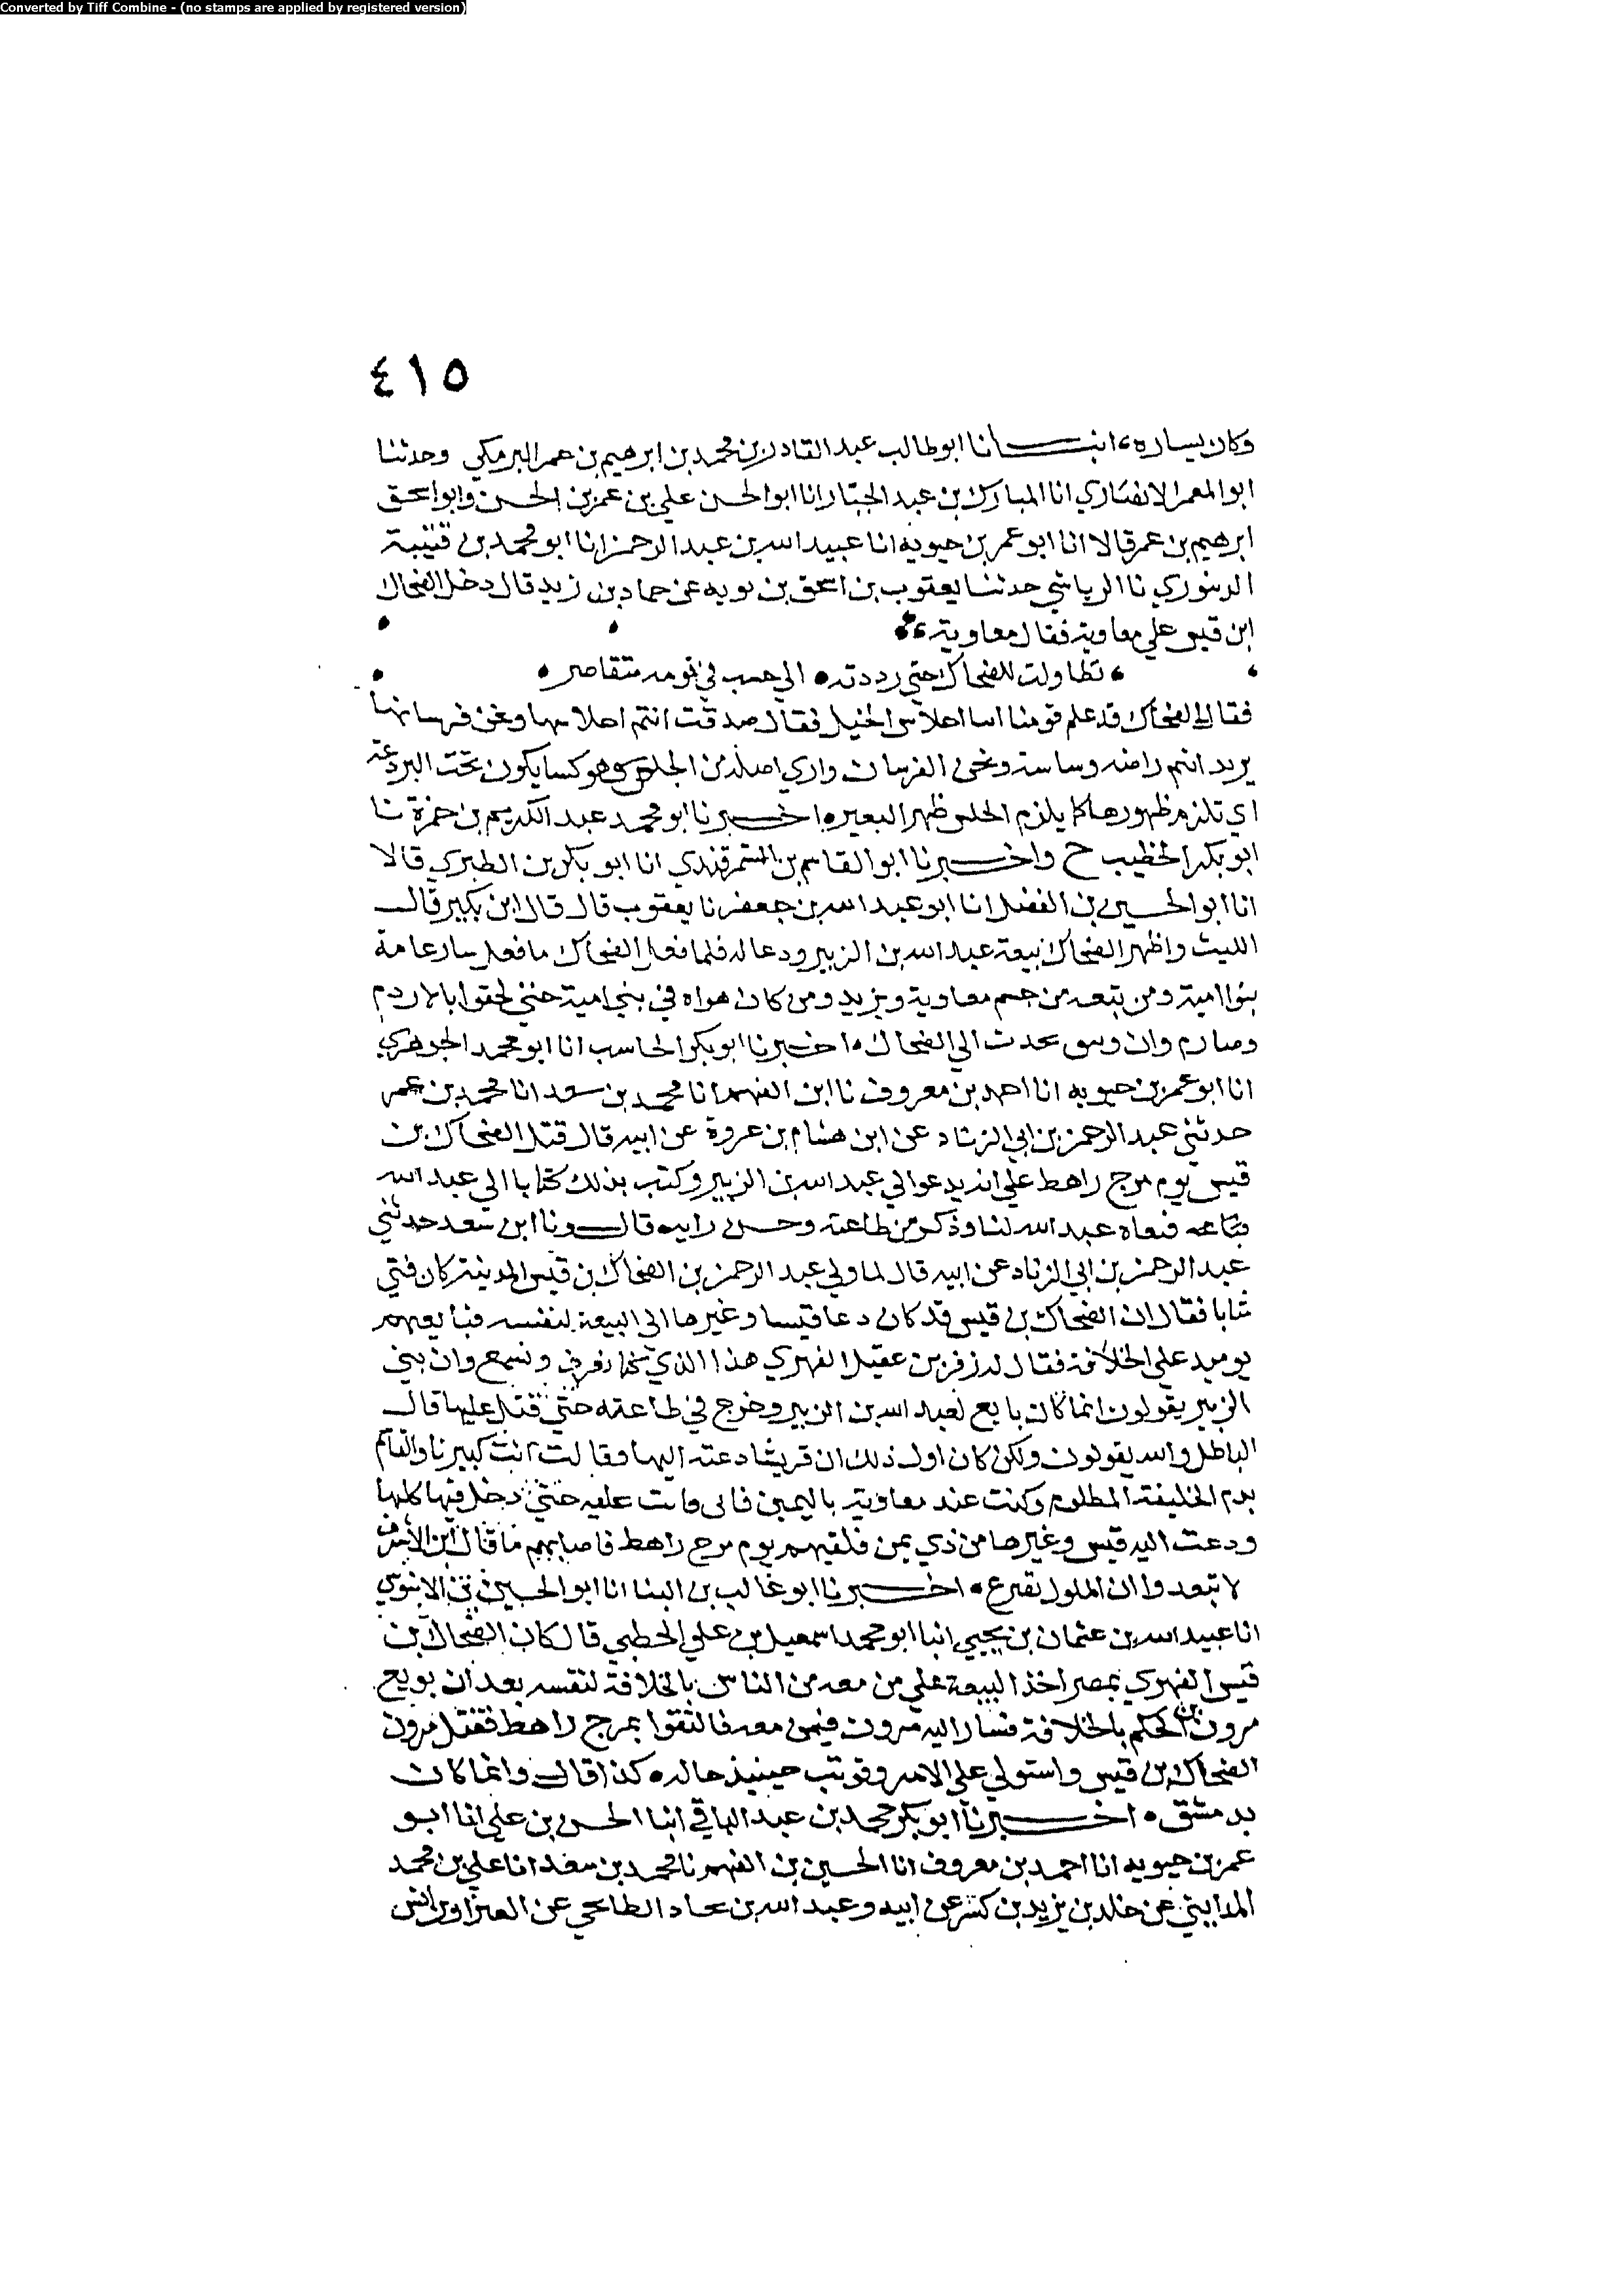 Converted by Tiff Combine - (no stamps are applied by registered version)
٤١٥
وكان يساره، انبــــانا ابو طالب عبد القادر بن محمد بن ابرهيم بن عمر البرمكي وحدثنا
ابو المعمر الانصاري انا المبارك بن عبد الجبار انا ابو الحسن علي بن عمر بن الحسن وابو اسحق
ابرهيم بن عمر قالا انا ابو عمر بن حيويه انا عبيد الله بن عبد الرحمن انا ابو محمد بن قتيبة
الدينوري نا الرياشي حدثنا يعقوب بن اسحق بن توبه عن حماد بن زيد قال دخل الضحاك
ابن قيس علي معاوية فقال معاوية،
تطاولت للضحاك حتي رددته الي حسب في قومه متقاصر
فقال الضحاك قد علم قومنا انا احلاس الخيل فقال صدقت انتم احلاسها ونحن فرسانها
يريد انتم راضه وساسة ونحن الفرسان واري اصله من الحلس وهو كسا يكون تحت البردعة
اي تلزم ظهورها كما يلزم الحلس ظهر البعير، اخــــبرنا ابو محمد عبد الكريم بن حمزة نا
ابو بكر الخطيب ح واخــــبرنا ابو القاسم بن السمرقندي انا ابو بكر بن الطبري قالا
انا ابو الحسين بن الفضل انا ابو عبد الله بن جعفر نا يعقوب قال قال ابن بكير قال
الليث واظهر الضحاك بيعة عبد الله بن الزبير ودعا له فلما فعل الضحاك ما فعل سار عامة
بنوا امية ومن تبعه من حسم معاوية ويزيد ومن كان هواه في بني امية حتي لحقوا بالاردم
وصارم وان وسق بحدث الي الضحاك، اخــبرنا ابو بكر الحاسب انا ابو محمد الجوهري
انا ابو عمر بن حيويه انا احمد بن معروف نا ابن الفهم انا محمد بن سعد انا محمد بن عمر
حدثني عبد الرحمن بن ابي الزناد عن ابن هشام بن عروة عن ابيه قال قتل الضحاك بن
قيس يوم مرج راهط علي انه يدعو الي عبد الله بن الزبير وكتب بذلك كتابا الي عبد الله
فنعاه عبد الله لنا وذكر من طاعته وحسن رايه قال ونا ابن سعد حدثني
عبد الرحمن بن ابي الزناد عن ابيه قال لما ولي عبد الرحمن بن الضحاك بن قيس المدينة كان فتي
شابا فقال ان الضحاك بن قيس قد كان دعا قيسا وغيرها الي البيعة لنفسه فبايعهم
يوميذ علي الخلافة فقال له زفر بن عقيل الفهري هذا الذي كنا نعرف ونسمع وان بني
الزبير يقولون انما كان بايع لعبد الله بن الزبير وخرج في طاعته حتي قتل عليها قال
الباطل والله يقولون ولكن كان اول ذلك ان قريشا دعته اليها وقالت انت كبيرنا والقايم
بدم الخليفة المظلوم وكنت عند معاوية باليمين فابى وابت عليه حتي دخل فيها كارها
ودعت اليه قيس وغيرها من ذي يمن فلقيهم يوم مرج راهط فاصابهم ما قال ابن الاشرف
لا تبعدوا ان الملول تصرع، اخــــبرنا ابو غالب بن البنا انا ابو الحسين بن الابنوسي
انا عبيد الله بن عثمان بن يحيي انبا ابو محمد اسمعيل بن علي الخطبي قال كان الضحاك بن
قيس الفهري بمصر اخذ البيعة علي من معه من الناس بالخلافة لنفسه بعد ان بويع
مرون بن الحكم بالخلافة فسار اليه مرون فيمن معه فالتقوا بمرج راهط فقتل مرون
الضحاك بن قيس واستولي علي الامر وقويت حينيذ حاله، كذا قال وانما كان
بدمشق، اخــــبرنا ابو بكر محمد بن عبد الباقي انبا الحسن بن علي انا ابو
عمر بن حيويه انا احمد بن معروف انا الحسين بن الفهم نا محمد بن سعد انا علي بن محمد
المدايني عن خالد بن يزيد بن بشر عن ابيه وعبد الله بن نجاد الطابخي عن العيزار بن انس